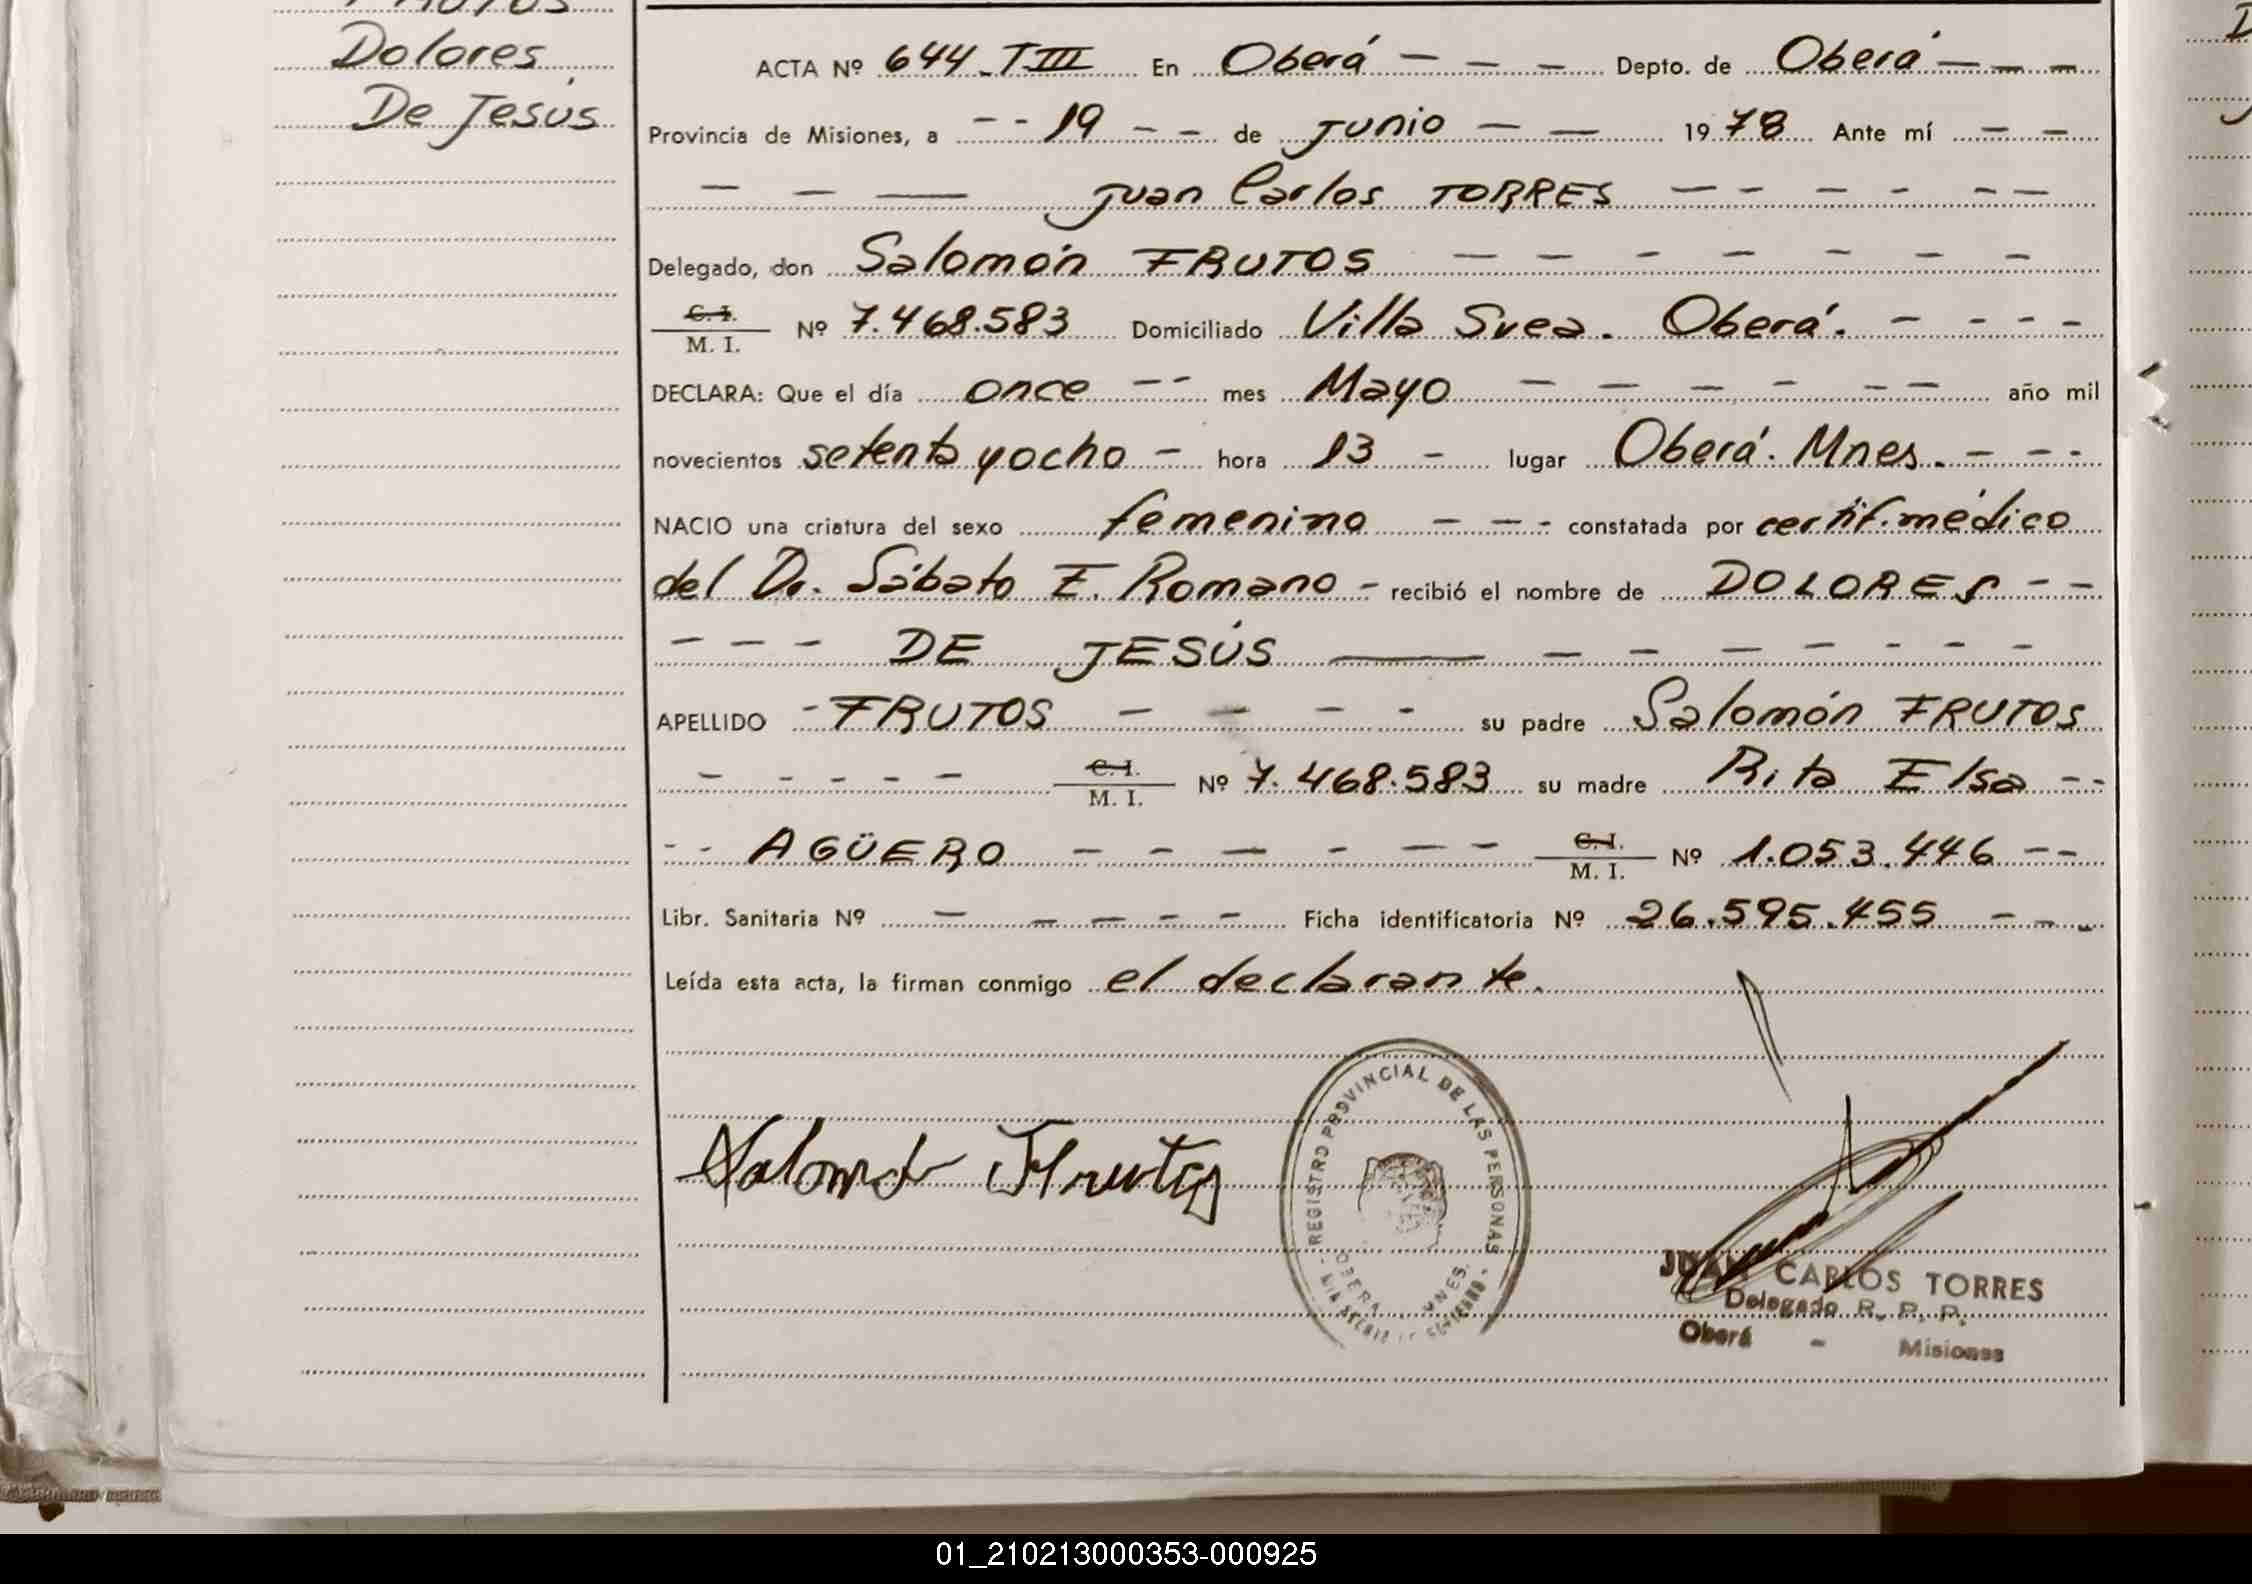 Dolores
De Jesús
ACTA Nº 644 - T III En Oberá - - - Depto. de Oberá - - -
Provincia de Misiones, a - - 19 - - de junio - - 1978 Ante mí - -
- - - Juan Carlos TORRES - - - - - - -
Delegado, don Salomón FRUTOS - - - - - - -
C. I.
M. I. Nº 7.468.583 Domiciliado Villa Svea. Oberá. - - - -
DECLARA: Que el día once - - mes Mayo - - - - - - año mil
novecientos setenta y ocho - hora 13 - lugar Oberá. Mnes. - - -
NACIO una criatura del sexo femenino - - - constatada por certif. médico
del Dr. Sábato E. Romano - recibió el nombre de DOLORES - -
- - - DE JESÚS - - - - - - -
APELLIDO - FRUTOS - - - - su padre Salomón FRUTOS
- - - - - C. I.
M. I. Nº 7.468.583 su madre Rita Elsa - -
- - AGÜERO - - - - - - C. I.
M. I. Nº 1.053.446 - -
Libr. Sanitaria Nº - - - - - Ficha identificatoria Nº 26.595.455 - - -
Leída esta acta, la firman conmigo el declarante.
REGISTRO PROVINCIAL DE LAS PERSONAS
OBERA MNES.
JUAN CARLOS TORRES
Delegado R. P. P.
Oberá - Misiones
01_210213000353-000925